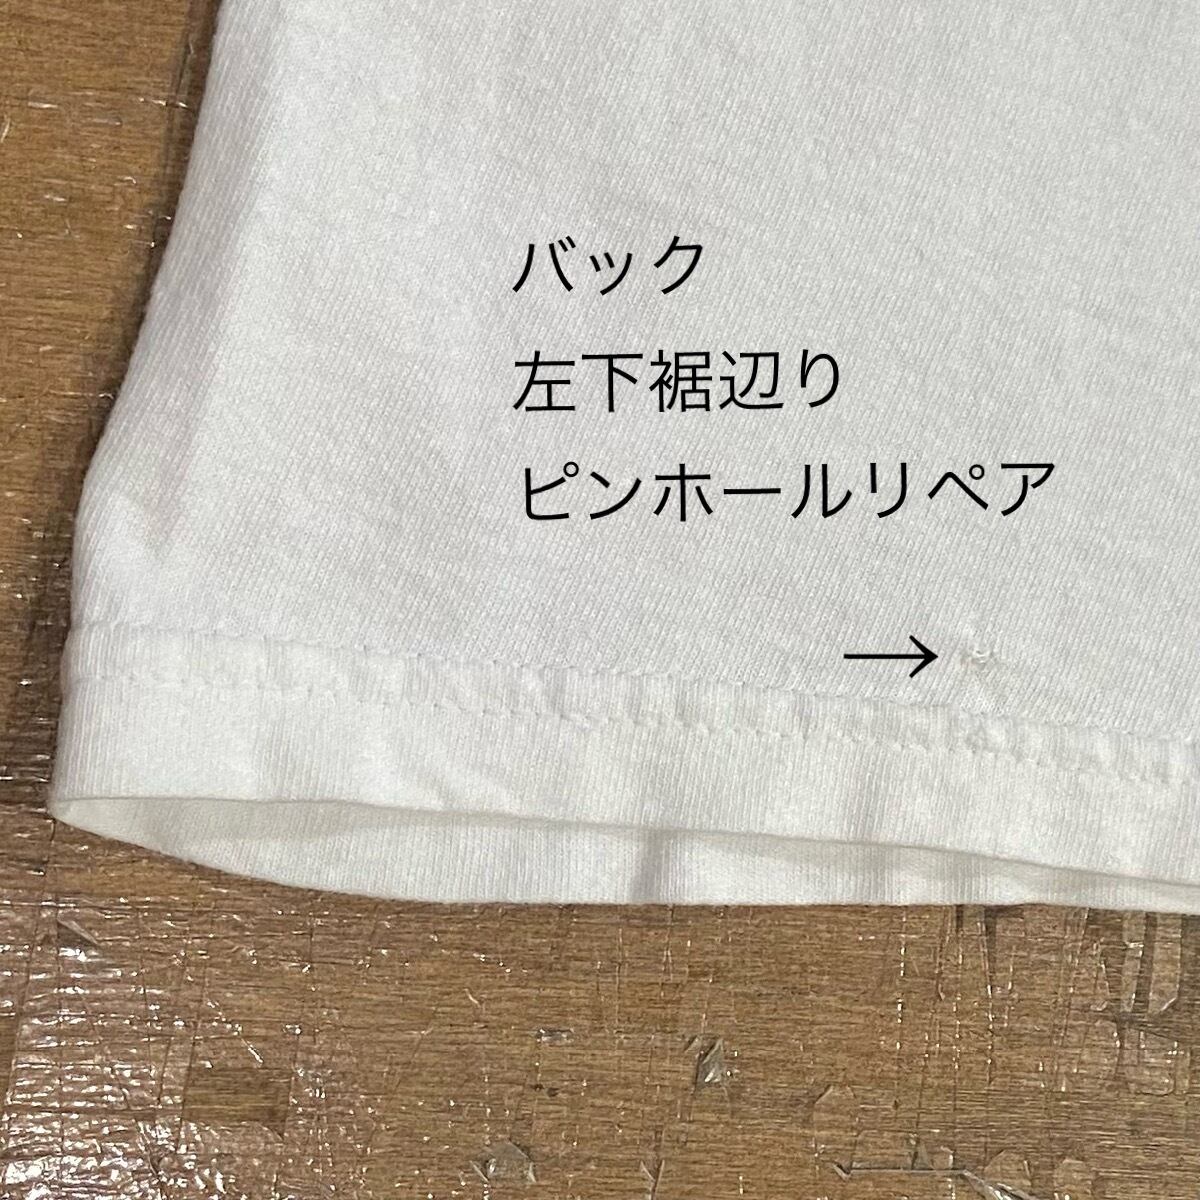 バック
左下裾辺り
ピンホールリペア
→